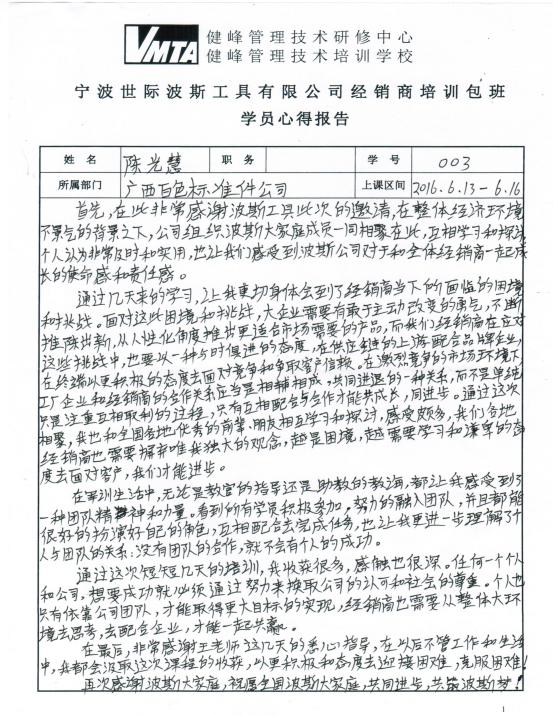 VMTA 健峰管理技术研修中心
健峰管理技术培训学校
宁波世际波斯工具有限公司经销商培训包班
学员心得报告
姓名 陈光慧 职务 学号 003
所属部门 广西百色标准件公司 上课区间 2016.6.13-6.16
首先,在此非常感谢波斯工具此次的邀请,在整体经济环境
不景气的背景之下,公司组织波斯大家庭成员一同相聚在此,互相学习和探讨,
个人认为非常及时和实用,也让我们感受到波斯公司对于和全体经销商一起成
长的使命感和责任感。
通过几天来的学习,让我更切身体会到了经销商当下的面临的困境
和挑战。面对这些困境和挑战,大企业需要有敢于主动改变的勇气,不断
推陈出新,从人性化角度推出更适合市场需要的产品,而我们经销商在应对
这些挑战中,也要以一种与时俱进的态度,在供应链的上游配合品牌企业,
在终端以更积极的态度去面对竞争和争取客户信赖。在激烈竞争的市场环境下,
工厂企业和经销商的合作关系应当是相辅相成,共同进退的一种关系,而不是单纯
只是注重互相取利的过程,只有互相配合与合作才能共成长,同进步。通过这次
相聚,我也和全国各地优秀的前辈、朋友相互学习和探讨,感受颇多,我们各地
经销商也需要摒弃唯我独大的观念,越是困境,越需要学习和谦卑的态
度去面对客户,我们才能进步。
在军训生活中,无论是教官的指导还是助教的教诲,都让我感受到了
一种团队精神和力量。看到所有学员积极参加,努力的融入团队,并且都能
很好的扮演好自己的角色,互相配合去完成任务,也让我更进一步理解了个
人与团队的关系:没有团队的合作,就不会有个人的成功。
通过这次短短几天的培训,我收获很多,感触也很深。任何一个个人
和公司,想要成功就必须通过努力来换取公司的认可和社会的尊重。个人也
只有依靠公司团队,才能取得更大目标的实现,经销商也需要从整体大环
境去思考,去配合企业,才能一起共赢。
在最后,非常感谢王老师这几天的悉心指导,在以后不管工作和生活
中,我都会汲取这次课程的收获,以更积极和态度去迎接困难,克服困难!
再次感谢波斯大家庭,祝愿全国波斯大家庭,共同进步,共筑波斯梦!
1